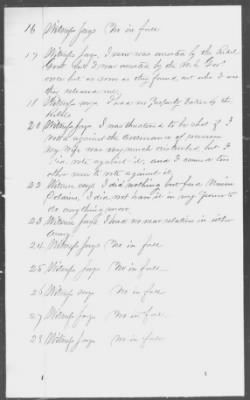 16 Witness says No in full
17 Witness says I never was arrested by the Rebel
Govt but I was arrested by the U.S. Gov
once but as soon as they found out who I was
they released me
18 Witness says I had no property taken by the
Rebbes
20 Witness says I was threatened to be shot if I
voted against the ordinance of secession
my wife was very much distressed but I
did vote against it, and I caused ten
other men to vote against it
22 Witness says I did nothing but feed Union
Soldiers, I did not have it in my power to
do anything more
23 Witness says I had no near relation in either
army
24 Witness says No in full
25 Witness says No in full
26 Witness says No in full
27 Witness says No in full
28 Witness says No in full